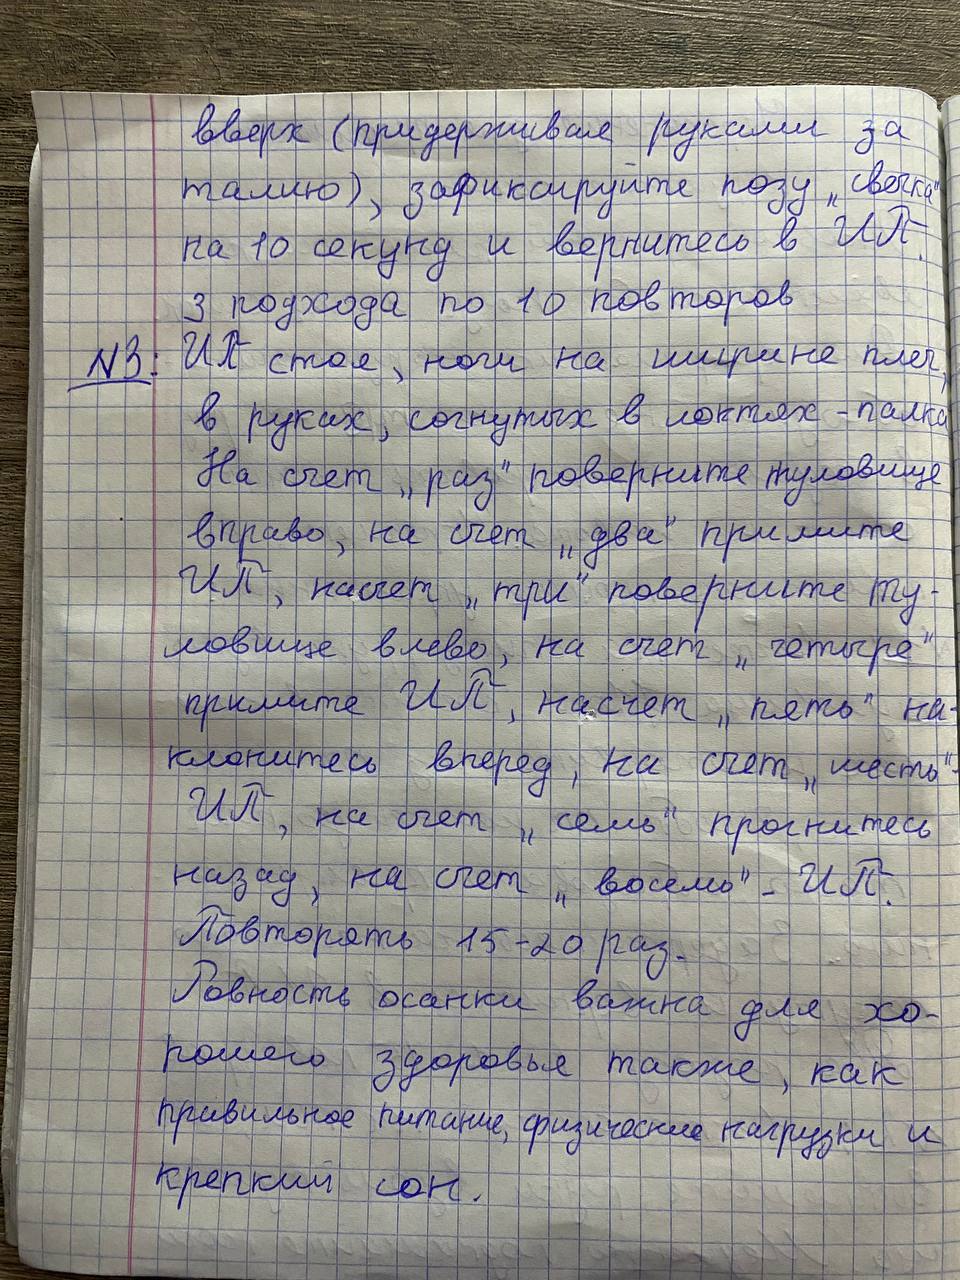 вверх (придерживая руками за
талию), зафиксируйте позу „свечка"
на 10 секунд и вернитесь в ИП.
3 подхода по 10 повторов
N3: ИП стоя, ноги на ширине плеч,
в руках, согнутых в локтях - палка
На счет „раз" поверните туловище
вправо, на счет „два" примите
ИП, насчет „три" поверните ту-
ловище влево, на счет „четыре"
примите ИП, насчет „пять" на-
клонитесь вперед, на счет „шесть"-
ИП, на счет „семь" прогнитесь
назад, на счет „восемь" - ИП.
Повторять 15-20 раз.
Ровность осанки важна для хо-
рошего здоровья также, как
правильное питание, физические нагрузки и
крепкий сон.